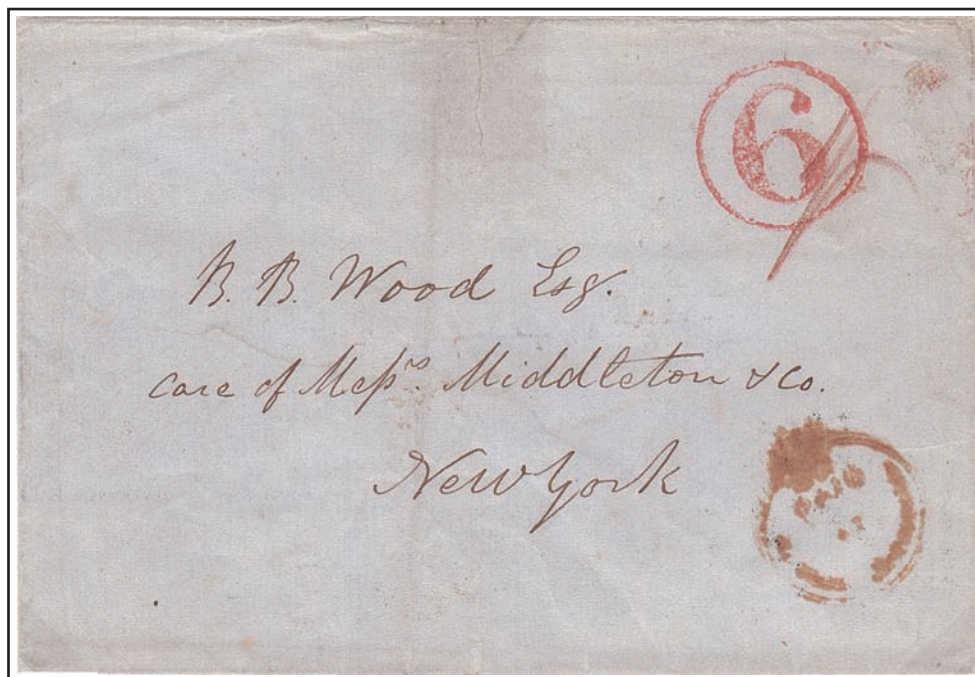 6
B. B. Wood Esq.
care of Mess^rs. Middleton & Co.
New York
PAID